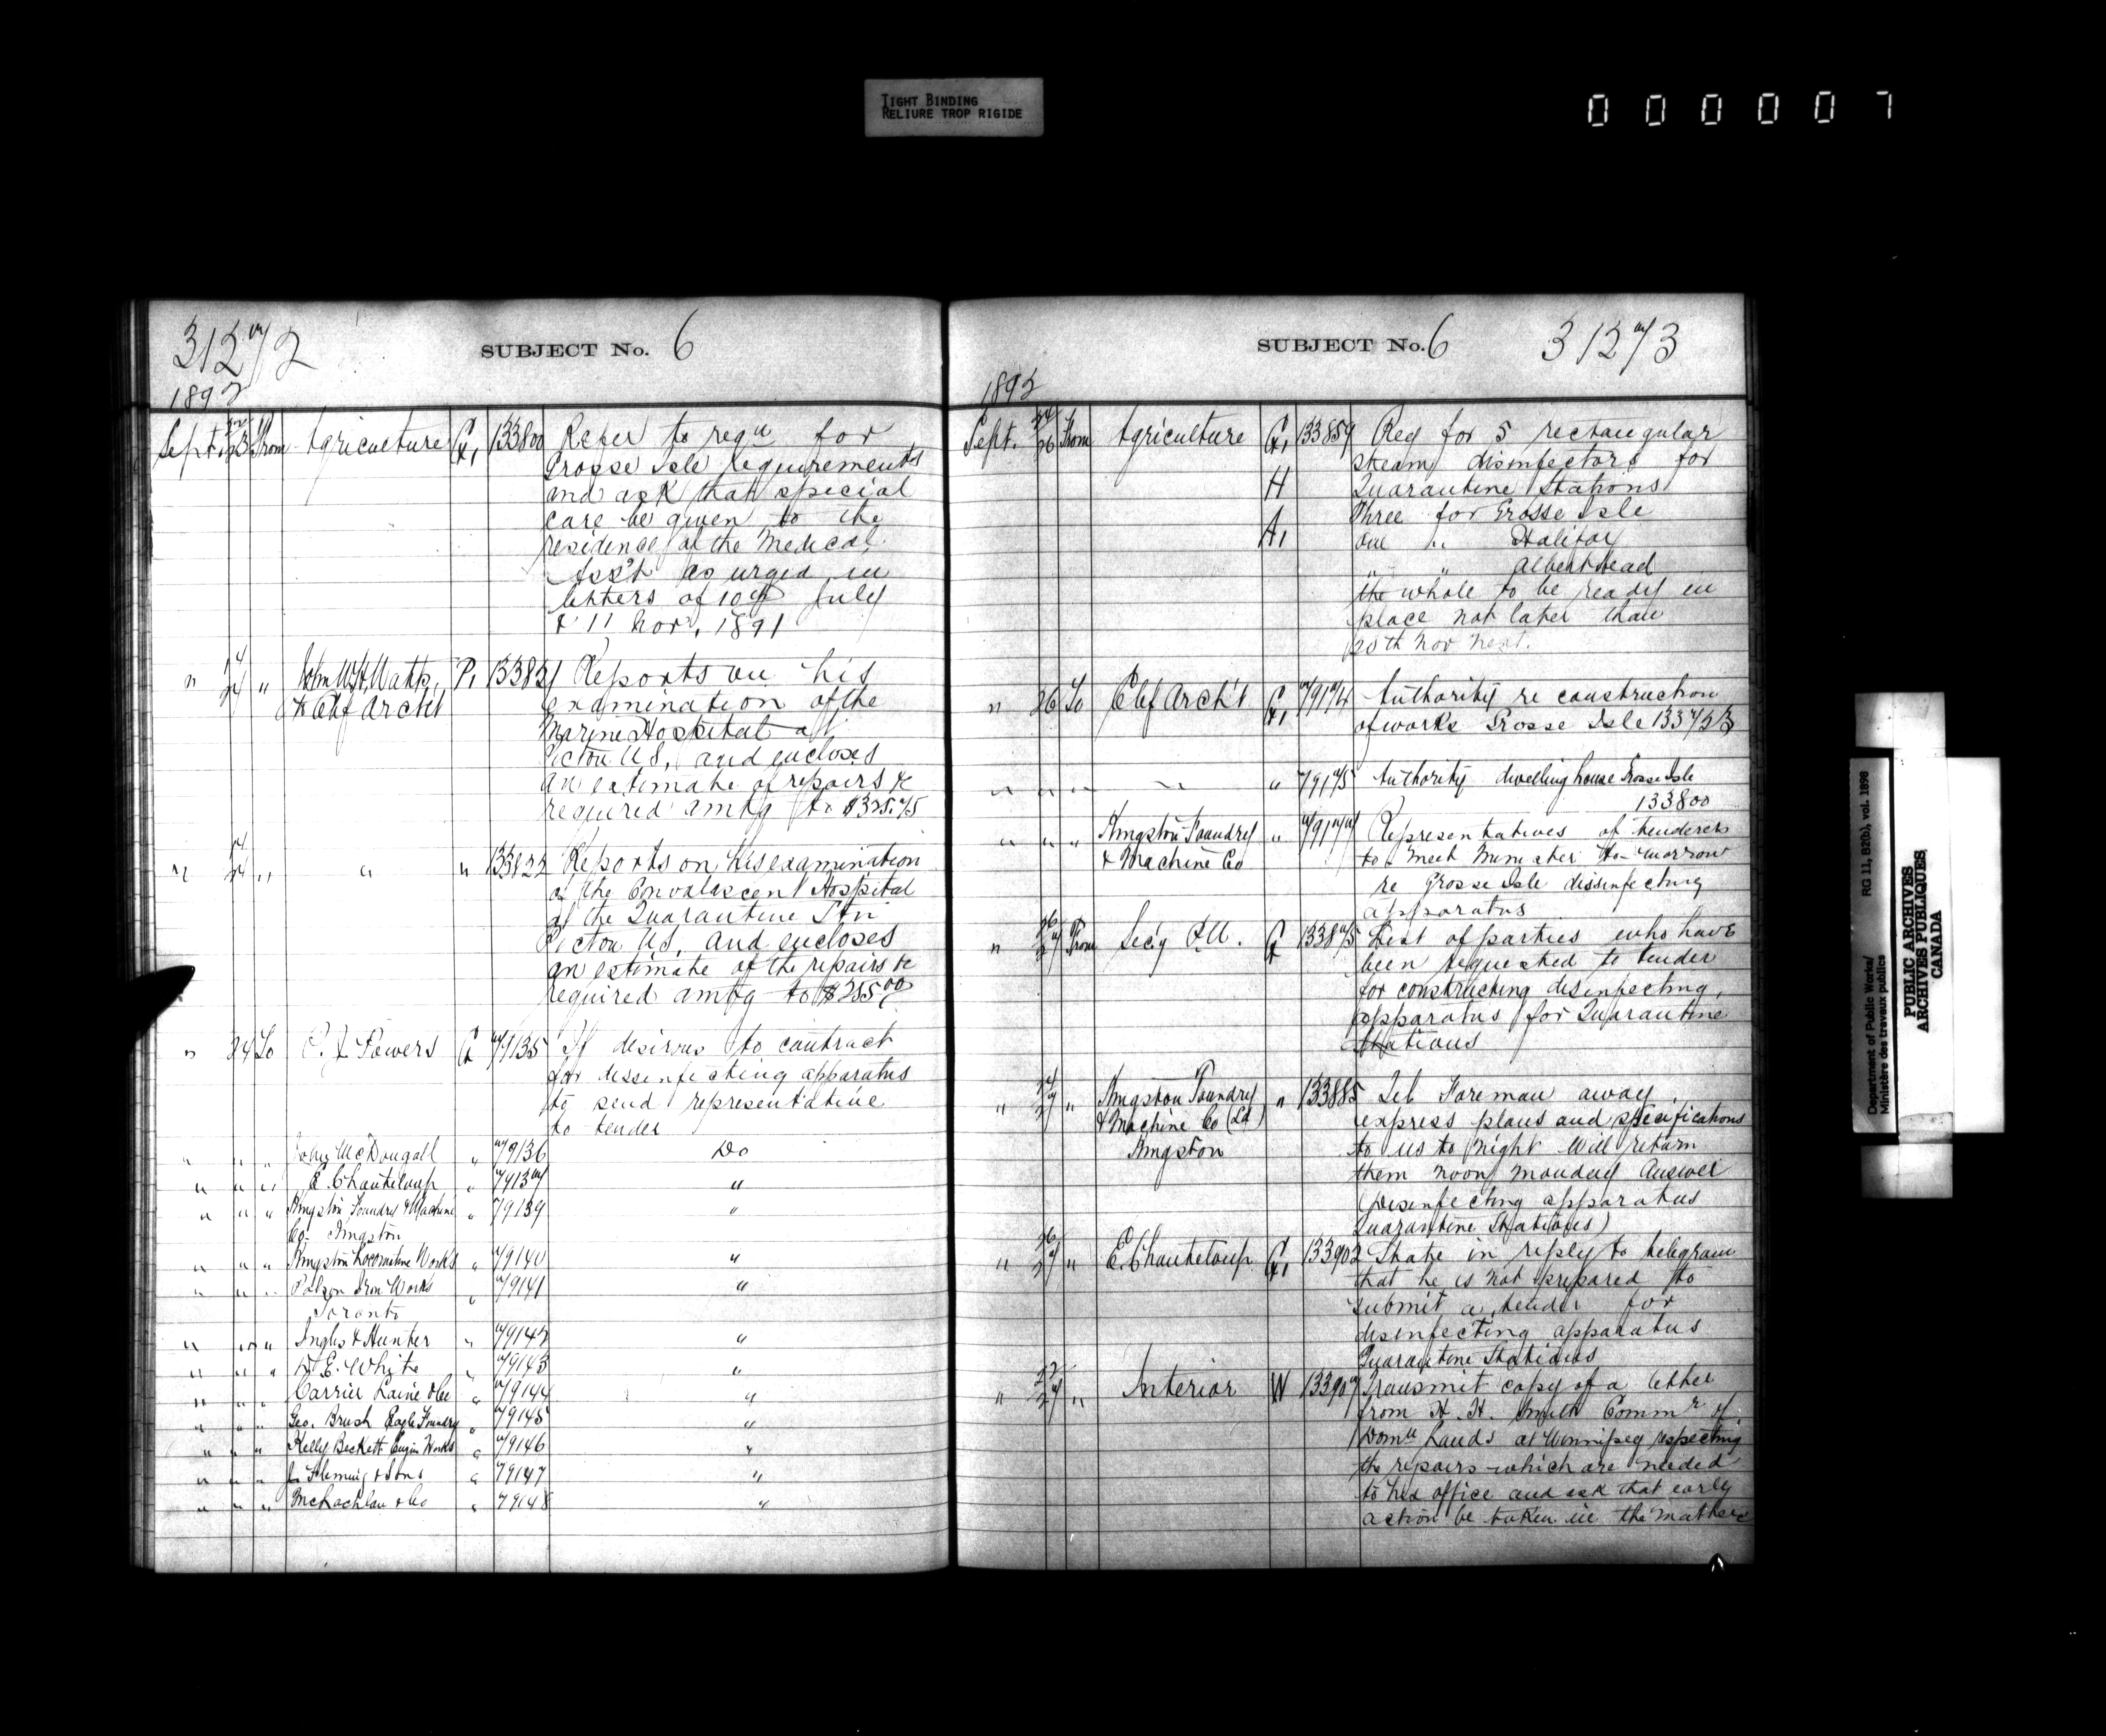 TIGHT BINDING
RELIURE TROP RIGIDE
0 0 0 0 0 7
31272
SUBJECT No. 6
1892
Sept. 22/23 From Agriculture G, 133800 Refer to reqn for
Grosse Isle requirements
and ask that special
care be given to the
residence of the Medical
Ass't as urged in
letters of 10th July
& 11 Nov. 1891
" 14/24 " John W.H. Watts, P, 133821 Reports on his
Chf Archt examination of the
Marine Hospital at
Picton N.S. and encloses
an estimate of repairs &c
required amtg to $325.75
" 14/24 " " " 133822 Reports on his examination
of the Convalescent Hospital
at the Quarantine Stn
Picton N.S. and encloses
an estimate of the repairs &c
required amtg to $285.00
" 24 To P. J. Powers G 79135 If desirous to contract
for dissinfecting apparatus
to send representative
to tender
" " " John McDougall " 79136 Do
" " " E. Chanteloup " 79137 "
" " " Kingston Foundry & Machine " 79139 "
Co. Kingston
" " " Kingston Locomotive Works " 79140 "
" " " Polson Iron Works " 79141 "
Toronto
" " " Inglis & Hunter " 79142 "
" " " E. White " 79143 "
" " " Carrier Laine & Co " 79144 "
" " " Geo. Brush Eagle Foundry " 79145 "
" " " Kelly Beckett Engin Works " 79146 "
" " " J. Fleming & Sons " 79147 "
" " " McLachlan & Co " 79148 "
SUBJECT No. 6
31273
1892
Sept. 24/26 From Agriculture G, 133859 Req for 5 rectangular
steam disinfectors for
H Quarantine Stations
Three for Grosse Isle
A, one " Halifax
" " Albert Head
the whole to be ready in
place not later than
Nov next.
" 26 To Chf Arch't G, 79174 Authority re construction
of works Grosse Isle 133753
" " " " " 79175 Authority dwelling house Grosse Isle
133800
" " " Kingston Foundry " 79177 Representatives of tenderers
& Machine Co to meet Minister to-morrow
re Grosse Isle dissinfecting
apparatus
" 26/27 From Secy P.W. G 133875 List of parties who have
been requested to tender
for constructing disinfecting
apparatus for Quarantine
Stations
" 24/27 " Kingston Foundry " 133885 Foreman away
& Machine Co (Ld) express plans and specifications
Kingston to us to night Will return
them noon monday Answer
(Disinfecting apparatus
Quarantine Stations)
" 26/27 " E. Chanteloup G, 133902 State in reply to telegram
that he is not prepared to
submit a tender for
disinfecting apparatus
Quarantine Stations
" 22/27 " Interior W 133907 Transmit copy of a letter
from H. H. Smith Commr of
Domn Lands at Winnipeg respecting
the repairs which are needed
to his office and ask that early
action be taken in the matter
Department of Public Works/ RG 11, B2(b), vol. 1898
Ministère des travaux publics
PUBLIC ARCHIVES
ARCHIVES PUBLIQUES
CANADA